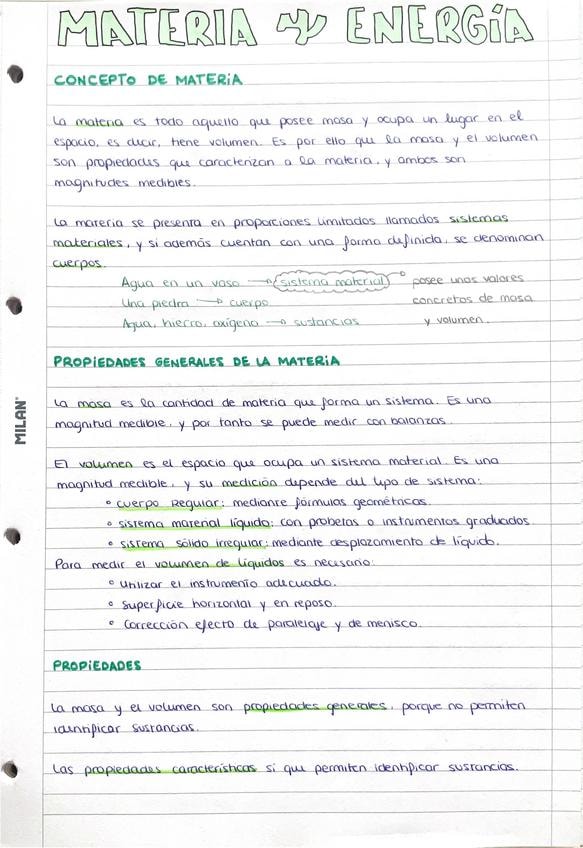 MATERIA Y ENERGÍA
CONCEPTO DE MATERIA
La materia es todo aquello que posee masa y ocupa un lugar en el
espacio, es decir, tiene volumen. Es por ello que la masa y el volumen
son propiedades que caracterizan a la materia, y ambos son
magnitudes medibles.
La materia se presenta en proporciones limitados llamados sistemas
materiales, y si además cuentan con una forma definida, se denominan
cuerpos.
Agua en un vaso → sistema material posee unos valores
Una piedra → cuerpo concretos de masa
Agua, hierro, oxígeno → sustancias y volumen.
PROPIEDADES GENERALES DE LA MATERIA
La masa es la cantidad de materia que forma un sistema. Es una
magnitud medible, y por tanto se puede medir con balanzas.
El volumen es el espacio que ocupa un sistema material. Es una
magnitud medible, y su medición depende del tipo de sistema:
° Cuerpo Regular: mediante fórmulas geométricas.
° Sistema material líquido: con probetas o instrumentos graduados.
° Sistema sólido irregular: mediante desplazamiento de líquido.
Para medir el volumen de líquidos es necesario:
° Utilizar el instrumento adecuado.
° Superficie horizontal y en reposo.
° Corrección efecto de paralelaje y de menisco.
PROPIEDADES
La masa y el volumen son propiedades generales, porque no permiten
identificar sustancias.
Las propiedades características si que permiten identificar sustancias.
MILAN®